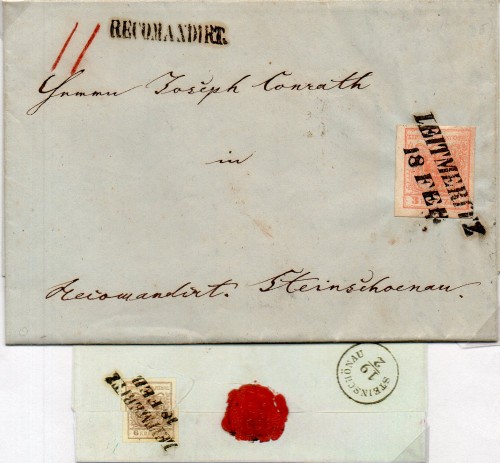 RECOMANDIRT.
Herrn Joseph Conrath
in
Recomandirt. Steinschoenau.
LEITMERITZ
18 FEB.
LEITMERITZ
18 FEB.
STEINSCHÖNAU
19/2